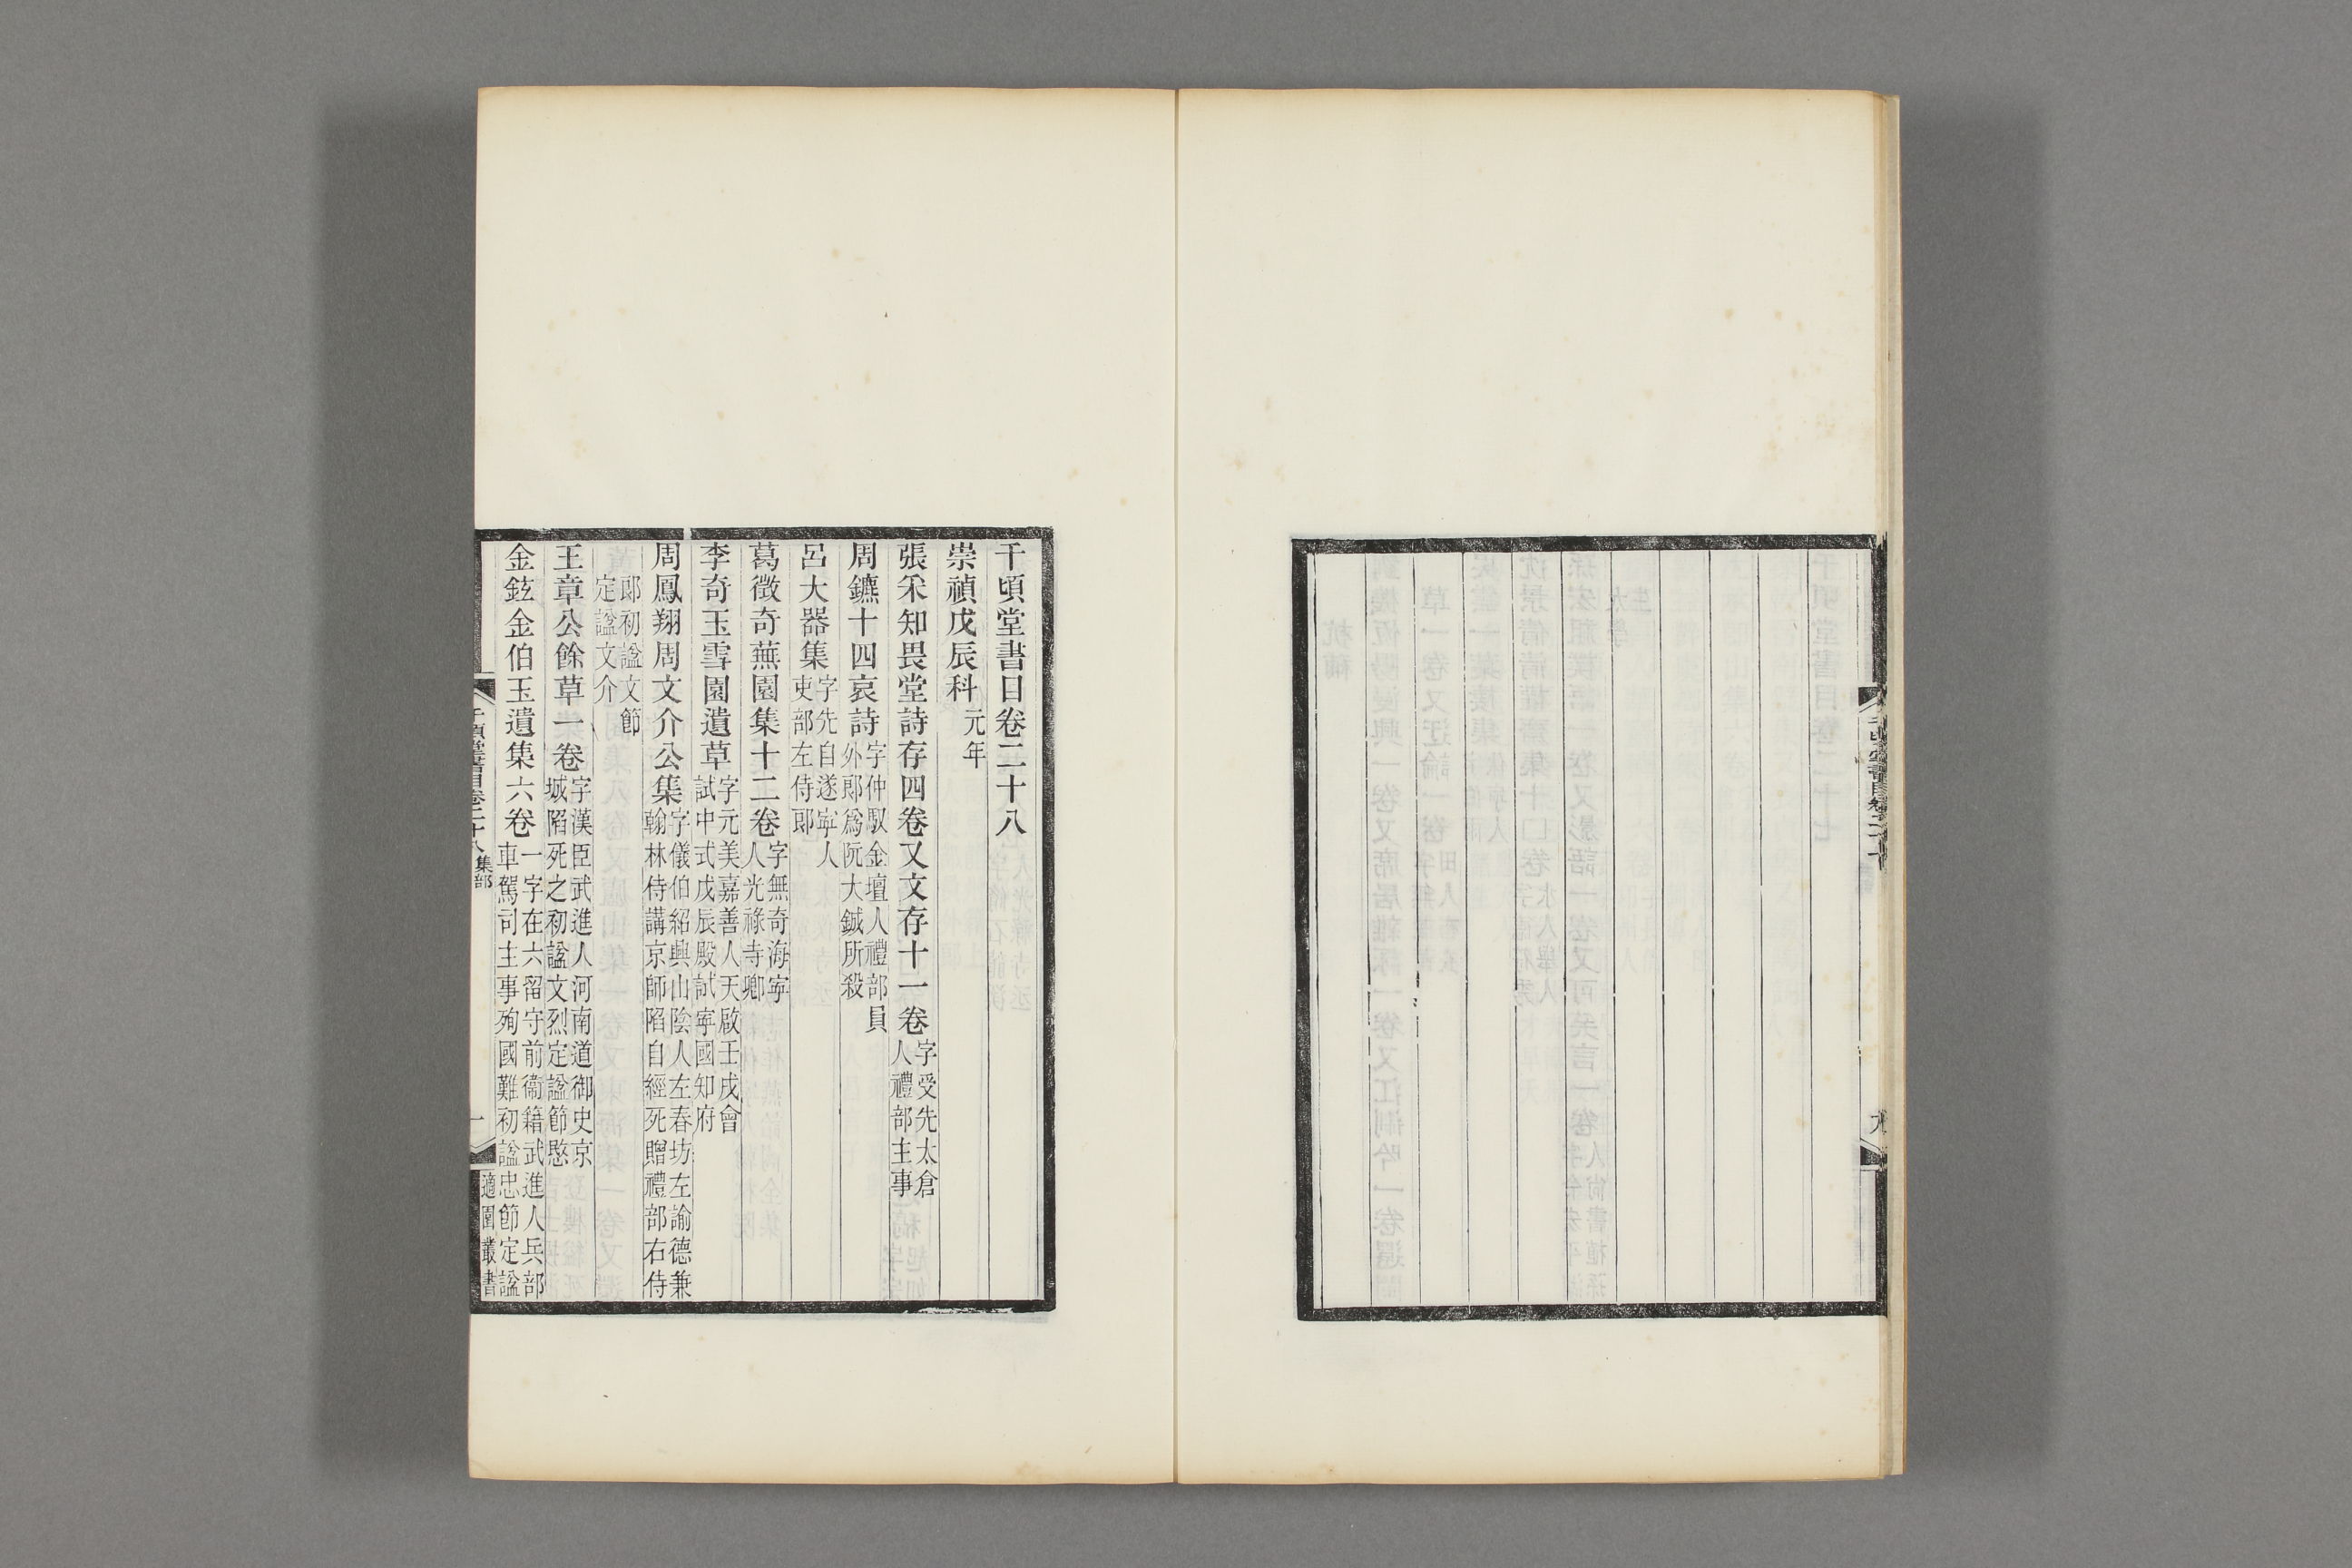 千頃堂書目卷二十八
崇禎戊辰科元年
張采知畏堂詩存四卷又文存十一卷字受先太倉
人禮部主事
周鑣十四哀詩字仲馭金壇人禮部員
外郞爲阮大鋮所殺
呂大器集字先自遂寧人
吏部左侍郞
葛徵奇蕪園集十二卷字無奇海寧
人光祿寺卿
李奇玉雪園遺草字元美嘉善人天啟壬戌會
試中式戊辰殿試寧國知府
周鳳翔周文介公集字儀伯紹興山陰人左春坊左諭德兼
翰林侍講京師陷自經死贈禮部右侍
郞初諡文節
定諡文介
王章公餘草一卷字漢臣武進人河南道御史京
城陷死之初諡文烈定諡節愍
金鉉金伯玉遺集六卷一字在六留守前衞籍武進人兵部
車駕司主事殉國難初諡忠節定諡
千頃堂書目卷二十八 集部
一
適園叢書
千頃堂書目卷二十七